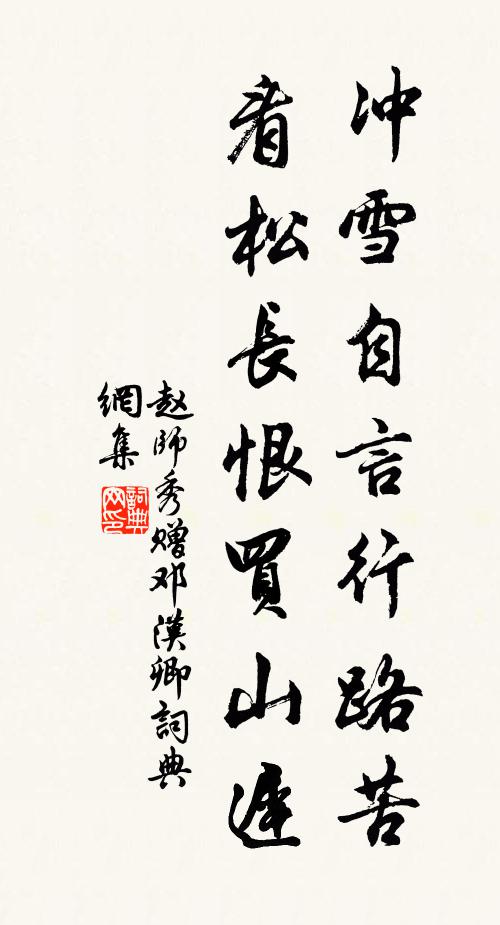 冲雪自言行路苦
看松長恨買山遲
赵師秀赠邓漢卿詞典
網集
詞典
网印